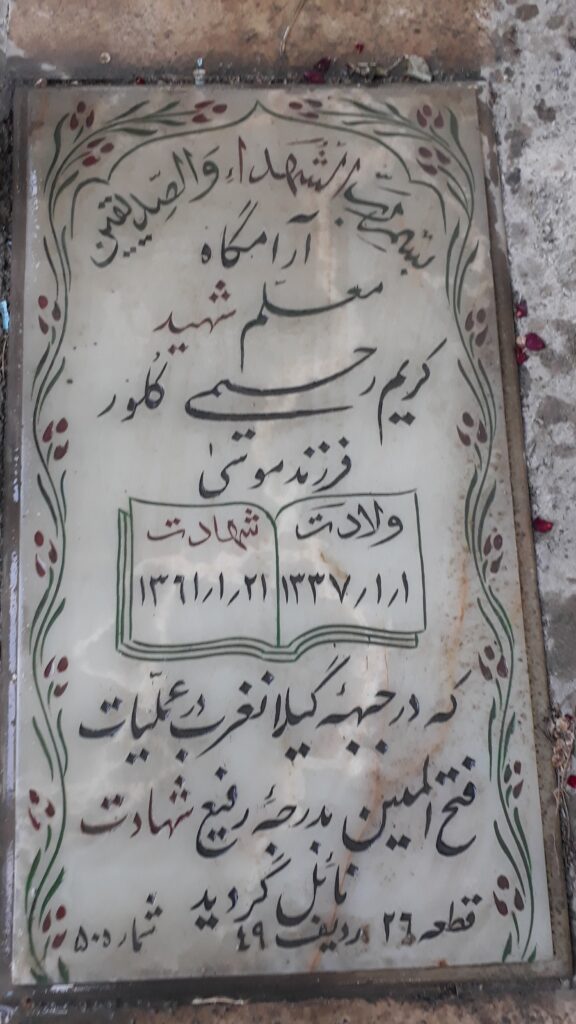 بسم رب الشهداء والصدیقین
آرامگاه
معلّم شهید
کریم رحیمی کلور
فرزند موسیٰ
ولادت شهادت
۱۳۳۷/۱/۱ ۱۳۶۱/۱/۲۱
که در جبههٔ گیلانغرب در عملیات
فتح المبین بدرجهٔ رفیع شهادت
نائل گردید
قطعه ۲۶ ردیف ۴۹ شماره ۵۰